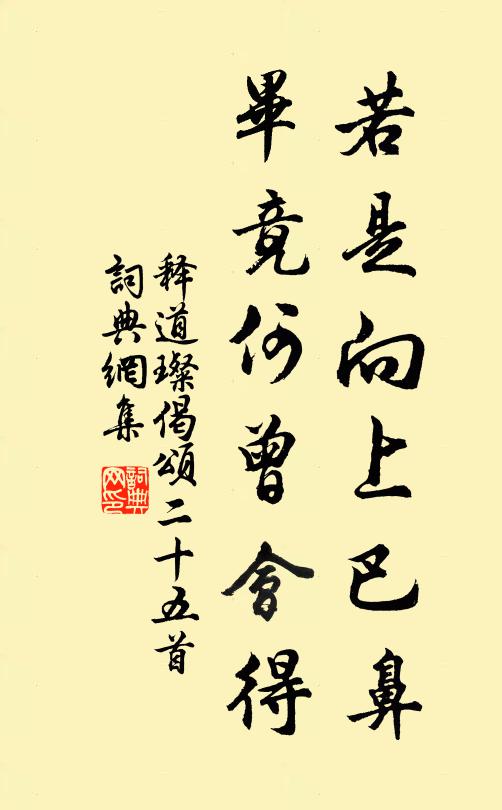 若是向上巴鼻
畢竟何曾會得
释道璨偈頌二十五首
詞典網集
詞典
网印